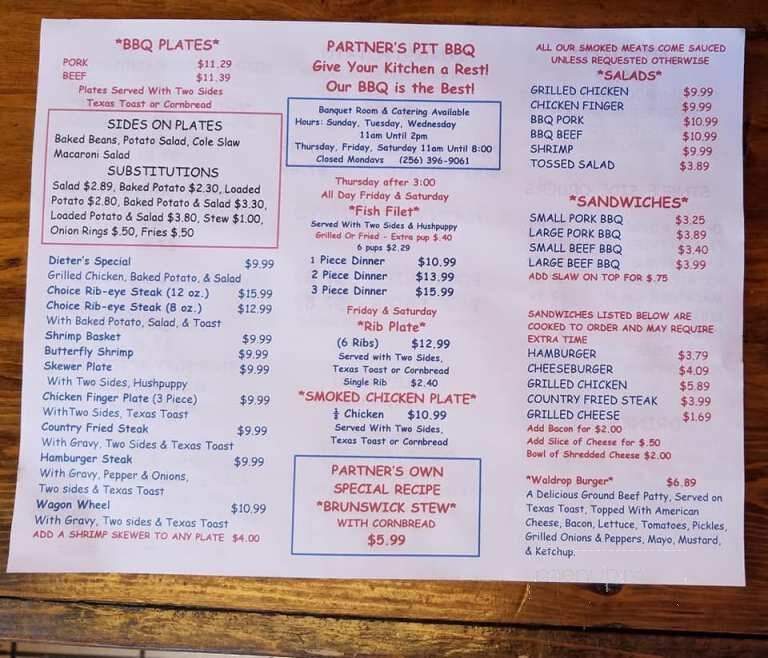 *BBQ PLATES*
PORK $11.29
BEEF $11.39
Plates Served With Two Sides
Texas Toast or Cornbread
SIDES ON PLATES
Baked Beans, Potato Salad, Cole Slaw
Macaroni Salad
SUBSTITUTIONS
Salad $2.89, Baked Potato $2.30, Loaded
Potato $2.80, Baked Potato & Salad $3.30,
Loaded Potato & Salad $3.80, Stew $1.00,
Onion Rings $.50, Fries $,50
Dieter's Special $9.99
Grilled Chicken, Baked Potato, & Salad
Choice Rib-eye Steak (12 oz.) $15.99
Choice Rib-eye Steak (8 oz.) $12.99
With Baked Potato, Salad, & Toast
Shrimp Basket $9.99
Butterfly Shrimp $9.99
Skewer Plate $9.99
With Two Sides, Hushpuppy
Chicken Finger Plate (3 Piece) $9.99
With Two Sides, Texas Toast
Country Fried Steak $9.99
With Gravy, Two Sides & Texas Toast
Hamburger Steak $9.99
With Gravy, Pepper & Onions,
Two sides & Texas Toast
Wagon Wheel $10.99
With Gravy, Two sides & Texas Toast
ADD A SHRIMP SKEWER TO ANY PLATE $4.00
PARTNER'S PIT BBQ
Give Your Kitchen a Rest!
Our BBQ is the Best!
Banquet Room & Catering Available
Hours: Sunday, Tuesday, Wednesday
11am Until 2pm
Thursday, Friday, Saturday 11am Until 8:00
Closed Mondays (256) 396-9061
Thursday after 3:00
All Day Friday & Saturday
*Fish Filet*
Served With Two Sides & Hushpuppy
Grilled Or Fried - Extra pup $.40
6 pups $2.29
1 Piece Dinner $10.99
2 Piece Dinner $13.99
3 Piece Dinner $15.99
Friday & Saturday
*Rib Plate*
(6 Ribs) $12.99
Served with Two Sides,
Texas Toast or Cornbread
Single Rib $2.40
*SMOKED CHICKEN PLATE*
½ Chicken $10.99
Served With Two Sides,
Texas Toast or Cornbread
PARTNER'S OWN
SPECIAL RECIPE
*BRUNSWICK STEW*
WITH CORNBREAD
$5.99
ALL OUR SMOKED MEATS COME SAUCED
UNLESS REQUESTED OTHERWISE
*SALADS*
GRILLED CHICKEN $9.99
CHICKEN FINGER $9.99
BBQ PORK $10.99
BBQ BEEF $10.99
SHRIMP $9.99
TOSSED SALAD $3.89
*SANDWICHES*
SMALL PORK BBQ $3.25
LARGE PORK BBQ $3.89
SMALL BEEF BBQ $3.40
LARGE BEEF BBQ $3.99
ADD SLAW ON TOP FOR $.75
SANDWICHES LISTED BELOW ARE
COOKED TO ORDER AND MAY REQUIRE
EXTRA TIME
HAMBURGER $3.79
CHEESEBURGER $4.09
GRILLED CHICKEN $5.89
COUNTRY FRIED STEAK $3.99
GRILLED CHEESE $1.69
Add Bacon for $2.00
Add Slice of Cheese for $.50
Bowl of Shredded Cheese $2.00
*Waldrop Burger* $6.89
A Delicious Ground Beef Patty, Served on
Texas Toast, Topped With American
Cheese, Bacon, Lettuce, Tomatoes, Pickles,
Grilled Onions & Peppers, Mayo, Mustard,
& Ketchup.